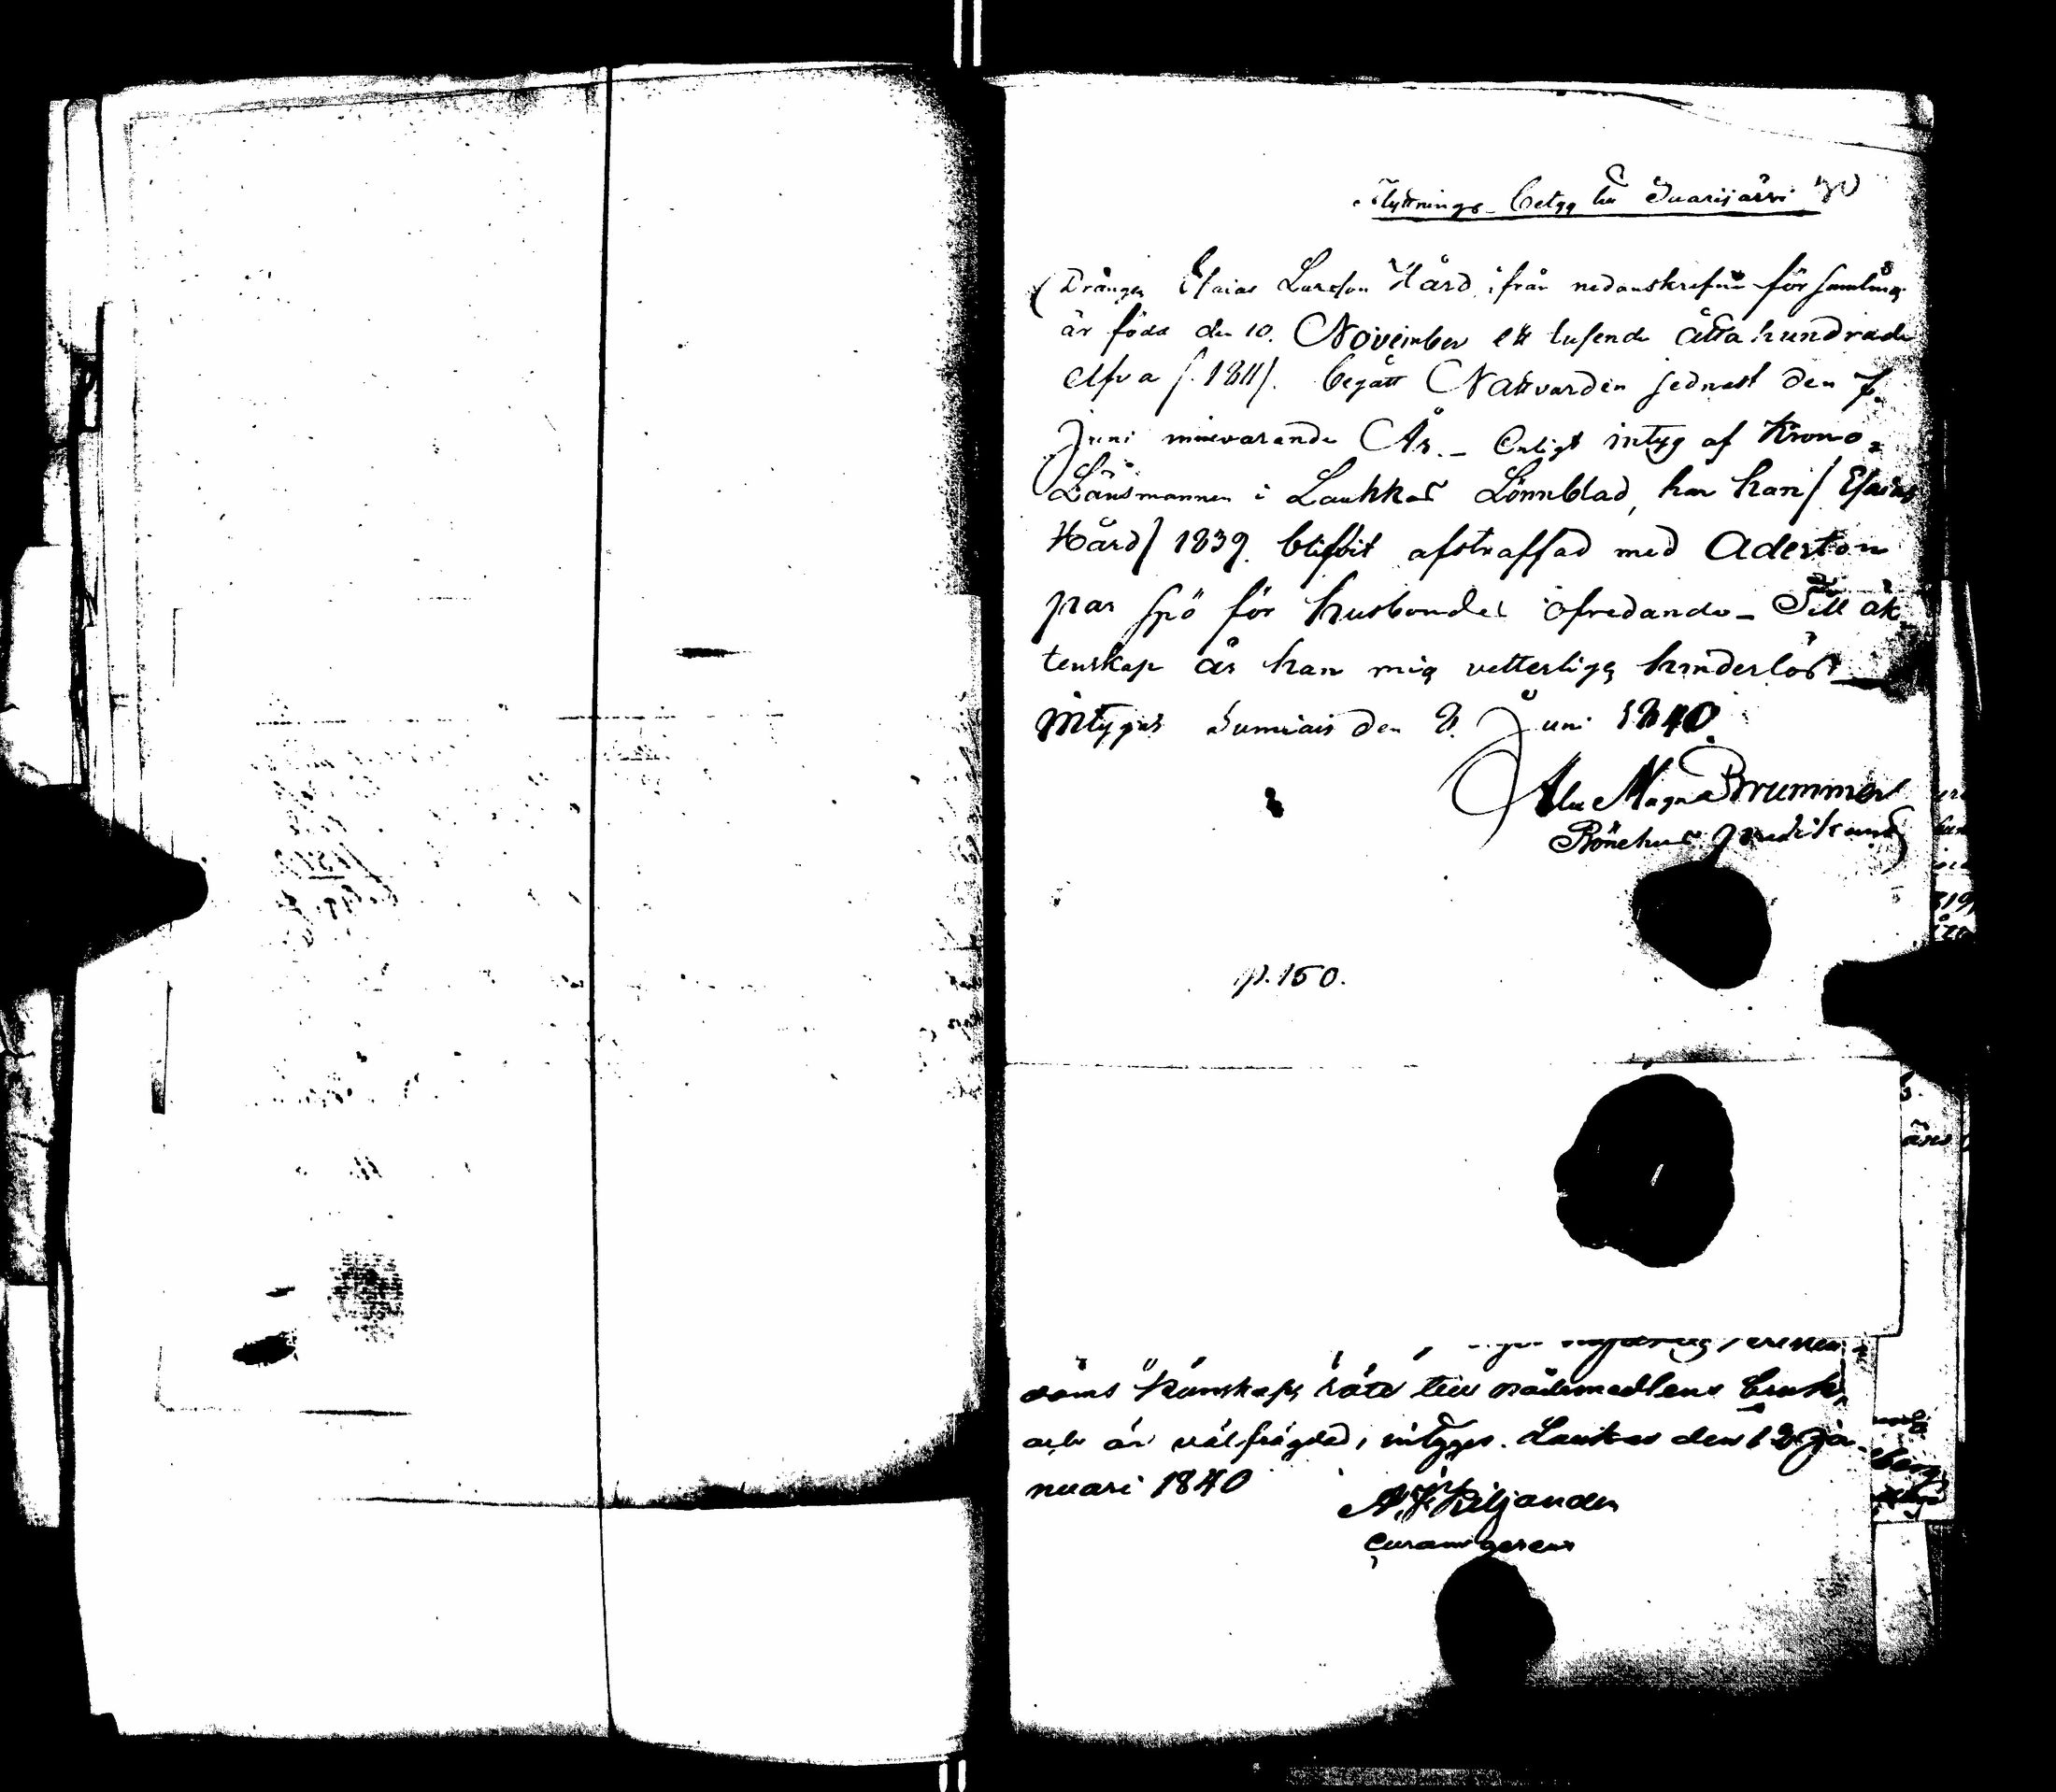 Flyttnings-betyg till Saarijärvi 30
Drängen Esaias Larsson Hård ifrån nedanskrefne församling
är född den 10. November ett tusende åtta hundrade
elfva /:1811/. begått Nattvarden sednast den 7.
Juni innevarande År. - Enligt intyg af Krono-
Länsmannen i Laukkas Lönnblad, har han / Esaias
Hård / 1839. blifvit afstraffad med Aderton
par spö för husbondes ofredande - Till äk-
tenskap är han mig vetterligen hinderlös
intygas Sumiais den 8. Juni 1840.
Alex Magn Brummer
Bönehus Predikant
p. 150.
doms kunskap, rätt till nådemedlens bruk,
och är välfrägdad, intygas. Laukas den 12 Ja-
nuari 1840
A. F. Kiljander
curam gerens